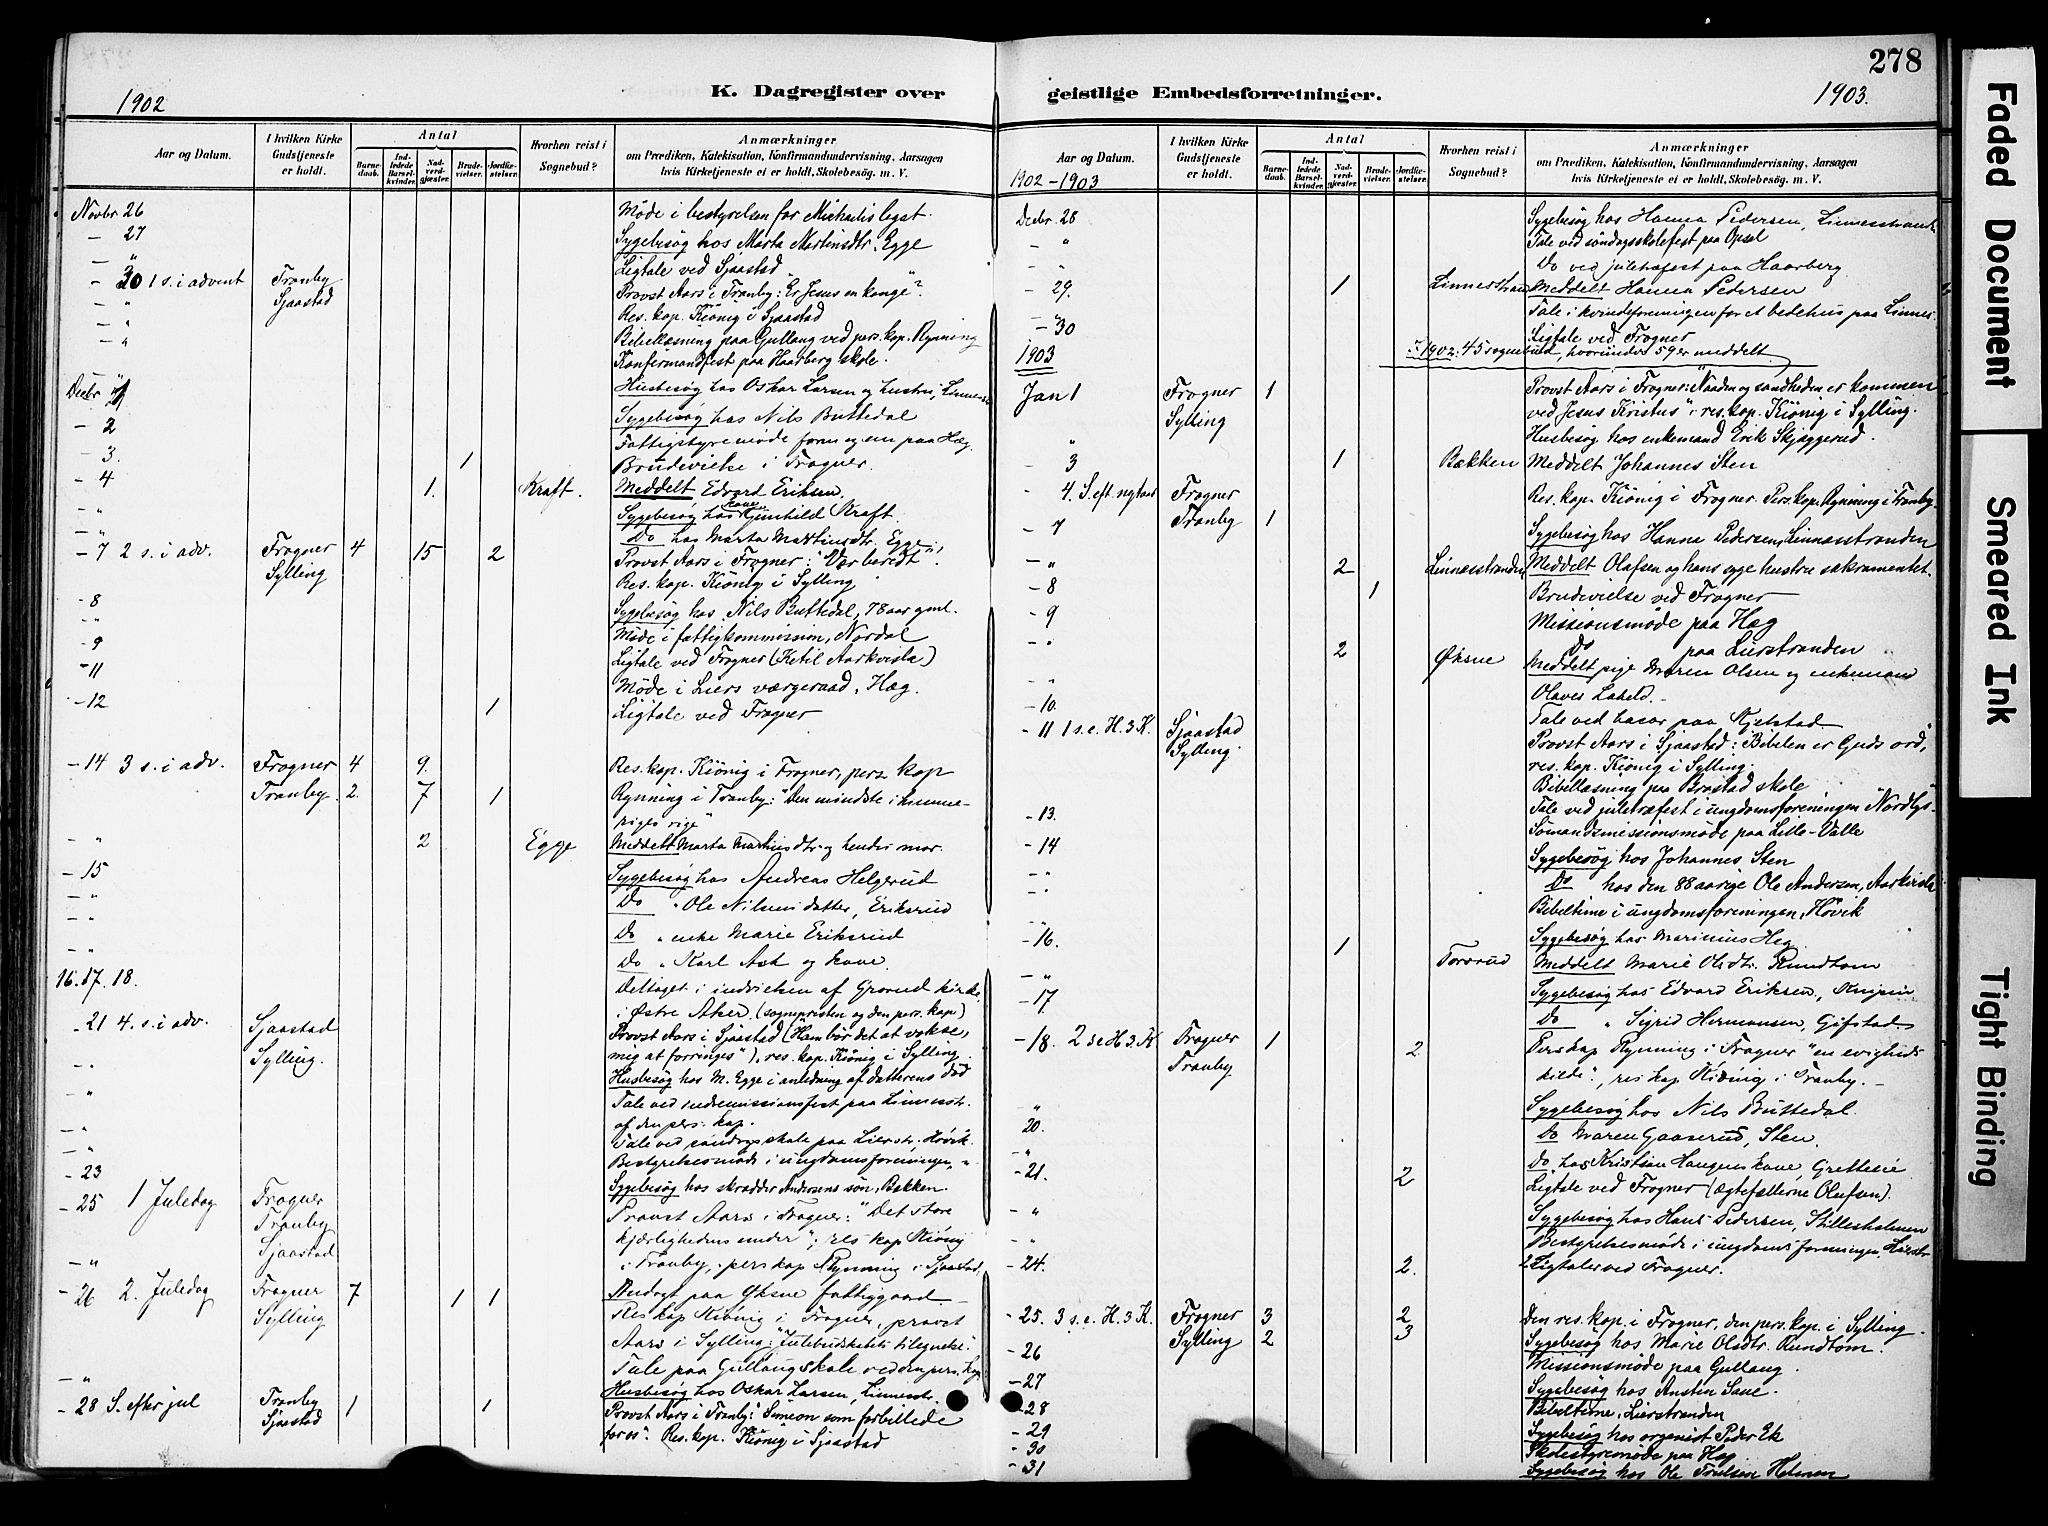 278
1902
K. Dagregister over
geistlige Embedsforretninger.
1903.
Aar og Datum.
I hvilken Kirke Gudstjeneste er holdt.
Antal
Barnedaab.
Indledede Barselkvinder.
Nadverdgjæster.
Brudevielser.
Jordfæstelser.
Hvorhen reist i Sognebud?
Anmærkninger
om Prædiken, Katekisation, Konfirmandundervisning, Aarsagen
hvis Kirketjeneste ei er holdt, Skolebesøg. m. V.
Novbr 26 Møde i bestyrelsen for Michaelis legat.
- 27 Sygebesøg hos Marta Martinsdtr. Egge
- " Ligtale ved Sjaastad
- 30 1 s. i advent Tranby Provst Aars i Tranby: "Er Jesus en konge".
- " Sjaastad Res. kap. Kiönig i Sjaastad
- " Bibellæsning paa Gullaug ved pers. kap. Rynning
- " Konfirmandfest paa Haarberg skole.
Decbr 1 Husbesøg hos Oskar Larsen og hustru, Linnesstr
Sygebesøg hos Nils Buttedal
- 2 Fattigstyremøde form og em paa Hæg.
- 3. 1 Brudevielse i Frogner.
- 4 1. Kraft. Meddelt Edvard Eriksen.
- " Sygebesøg hos kone Gunhild Kraft.
- " Do hos Marta Martinsdtr. Egge
- 7 2 s. i adv. Frogner 4 15 2 Provst Aars i Frogner: "Vær beredt".
Sylling Res. kap. Kiönig i Sylling
- 8 Sygebesøg hos Nils Buttedal, 78 aar gml.
- " Møde i fattigkommission, Nordal
- 9 Ligtale ved Frogner (Ketil Aarkvisla)
- 11 Møde i Liers værgeraad, Hæg.
- 12 1 Ligtale ved Frogner
- 14 3 s. i adv. Frogner 4 9. Res. kap. Kiönig i Frogner, pers kap
Tranby. 2. 7 1 Rynning i Tranby: "Den mindste i himme-
riges rige"
- " 2 Egge Meddelt Marta Martinsdtr og hendes mor.
- 15 Sygebesøg hos Andreas Helgerud
- " Do " Ole Nilsens datter, Eriksrud
- " Do " enke Marie Eriksrud
- " Do " Karl Ask og kone.
16. 17. 18. Deltaget i indvielsen af Grorud kirke,
i Østre Aker (sognepresten og den pers. kap)
- 21 4. s. i adv. Sjaastad Provst Aars i Sjaastad ("Ham bör det at vokse,
Sylling. mig at forringes"), res. kap. Kiönig i Sylling.
- " Husbesøg hos M. Egge i anledning af datterens død
- " Tale ved indremissionsfest paa Linnesstr.
af den pers. kap.
- " Tale ved söndagsskole paa Lierstr. Høvik.
- " Bestyrelsesmøde i ungdomsforeningen, "
- 23 Sygebesøg hos skrædder Andersens søn, Bakken.
- 25 1 Juledag Frogner Provst Aars i Frogner: "Det store
Tranby kjærlighedens under"; res kap Kiönig
Sjaastad i Tranby, pers kap Rynning i Sjaastad,
- " Andagt paa Øksne fattiggaard. -
- 26 2. Juledag Frogner 7 1 1 Res kap Kiönig i Frogner, provst
Sylling Aars i Sylling: "Julebudskabets tilegnelse".
- " Tale paa Gullaug skole ved den pers. kap.
Husbesøg hos Oskar Larsen, Linnesstr.
- 28 S. efter jul Tranby 1 1 Provst Aars i Tranby: "Simeon som forbillede
Sjaastad for os". Res. kap. Kiönig i Sjaastad
Aar og Datum.
I hvilken Kirke Gudstjeneste er holdt.
Antal
Barnedaab.
Indledede Barselkvinder.
Nadverdgjæster.
Brudevielser.
Jordfæstelser.
Hvorhen reist i Sognebud?
Anmærkninger
om Prædiken, Katekisation, Konfirmandundervisning, Aarsagen
hvis Kirketjeneste ei er holdt, Skolebesøg. m. V.
1902 - 1903
Decbr. 28 Sygebesøg hos Hanna Pedersen, Linnesstrand
- " Tale ved søndagsskolefest paa Opsal
- " Do ved juletræfest paa Haarberg
- 29. 1 Linnesstran Meddelt Hanna Pedersen
- " Tale i kvindeforeningen for et bedehus paa Linnes.
- 30 Ligtale ved Frogner
1903 I 1902: 45 sognebud, hvorunder 59 er meddelt.
Jan 1 Frogner 1 Provst Aars i Frogner: "Naaden og sandheden er kommen
Sylling ved Jesus Kristus"; res. kap. Kiönig i Sylling.
- " Husbesøg hos enkemand Erik Skjæggerud.
- 3 1 Bækken Meddelt Johannes Sten
- 4. S. eft. nytaar Frogner Res. kap. Kiönig i Frogner. Pers. kap. Rynning i Tranby.
Tranby 1
- 7 Sygebesøg hos Hanna Pedersen, Linnesstranden
- " 2 Linnesstranden Meddelt Olafsen og hans syge hustru sakramentet.
- 8 1 Brudevielse ved Frogner
- 9 Missionsmøde paa Hæg
- " Do paa Lierstranden
- " 2 Øksne Meddelt pige Maren Olsen og enkemand
Olaves Labeld.
- 10. Tale ved basar paa Kjelstad
- 11 1 s. e. H. 3 K. Sjaastad Provst Aars i Sjaastad: "Bibelen er Guds ord,
Sylling. res. kap. Kiönig i Sylling.
Bibellæsning paa Brastad skole
- 13. Tale ved juletræfest i ungdomsforeningen "Nordlys"
- 14 Sømandsmissionsmøde paa Lille-Valle
- " Sygebesøg hos Johannes Sten
- " Do hos den 88 aarige Ole Andersen, Aarkvisla
- " Bibeltime i ungdomsforeningen, Høvik
- 16. Sygebesøg hos Marinius Heg
- " 1 Torsrud Meddelt Marie Olsdtr. Rundtom
- 17. Sygebesøg hos Edvard Eriksen,
Do " Sigrid Hermansen, Gifstad
- 18. 2 s e H. 3. K Frogner 1 2 Pers kap Rynning i Frogner "en evigheds
Tranby kilde", res kap Kiönig i Tranby. -
" Sygebesøg hos Nils Buttedal.
20. Do Maren Gaaserud, Sten.
- " Do hos Kristian Haugens kone Grettelie
- 21. 2 Ligtale ved Frogner (ægtefællerne Olufsen).
- " Sygebesøg hos Hans Pedersen, Stillesholmen
- " Bestyrelsesmøde i ungdomsforeningen, Lierstr
- 24. 2. 2 Ligtaler ved Frogner.
- 25. 3 s. e. H. 3 K. Frogner 3 2 Den res. kap. i Frogner, den pers. kap. i Sylling.
Sylling 2 3 Sygebesøg hos Marie Olsdtr. Rundtom.
- 26 Missionsmøde paa Gullaug.
- 27 Sygebesøg hos Ansten Saue.
- 28 Bibeltime, Lierstranden
- 29 Sygebesøg hos organist Peder Ek
- 30 Skolestyremøde paa Hæg
- 31 Sygebesøg hos Ole Truelsen
Faded Document
Smeared Ink
Tight Binding